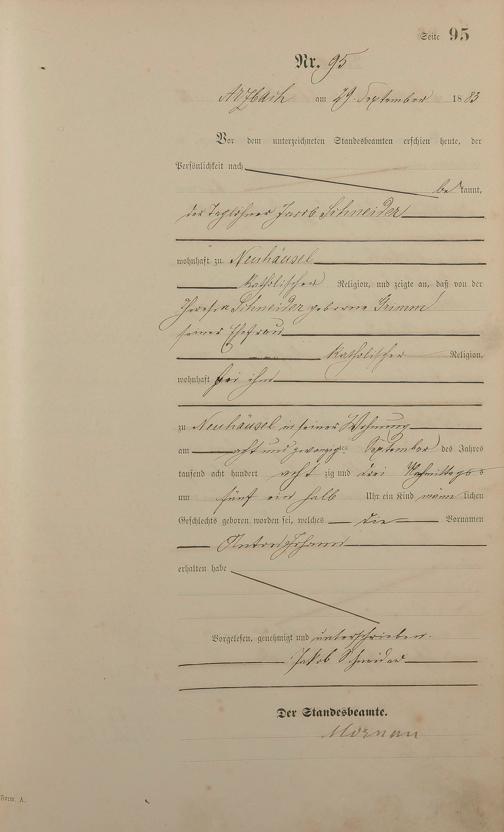 Seite 95
Nr. 95
Arzbach am 29. September 1883
Vor dem unterzeichneten Standesbeamten erschien heute, der
Persönlichkeit nach
bekannt,
der Taglöhner Jacob Schneider
wohnhaft zu Neuhäusel
katholischer Religion, und zeigte an, daß von der
Theresia Schneider geborne Grimm
seiner Ehefrau
katholischer Religion,
wohnhaft bei ihm
zu Neuhäusel in seiner Wohnung
am acht und zwanzigten September des Jahres
tausend acht hundert acht zig und drei Nachmittags
um fünf ein halb Uhr ein Kind männlichen
Geschlechts geboren worden sei, welches die Vornamen
Johann
erhalten habe
Vorgelesen, genehmigt und unterschrieben.
Jakob Schneider
Der Standesbeamte.
Form. A.